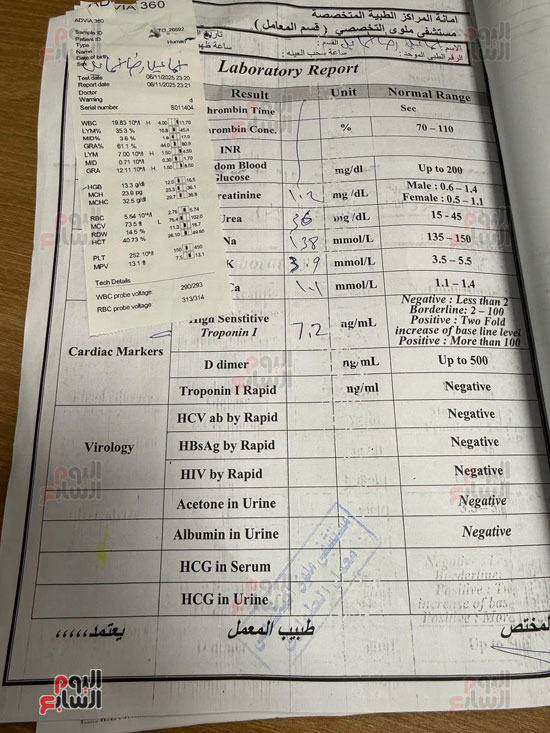 ADVIA 360
Sample ID TO_26692
Patient ID
Type Human
Name
Date of birth
Test date 06/11/2025 23:20
Report date 06/11/2025 23:21
Doctor
Warning d
Serial number S011404
WBC 19.83 10^9/l H 4.00 11.70
LYM% 35.3 % 10.8 45.4
MID% 3.6 %
GRA% 61.1 % 44.0 80.9
LYM 7.00 10^9/l H 1.50 4.50
MID 0.71 10^9/l 0.30 1.70
GRA 12.11 10^9/l H 1.50
HGB 13.3 g/dl 12.0 16.5
MCH 23.9 pg
MCHC 32.5 g/dl 29.7 36.8
RBC 5.54 2.76 5.74
MCV 73.5 fl L 76.4
RDW 14.5 % 11.3
HCT 40.73 % 26.10
PLT 252 10^9/l 150 450
MPV 13.1 fl 7.5 13.1
Tech Details
WBC probe voltage 290/293
RBC probe voltage 313/314
امانة المراكز الطبية المتخصصة
مستشفى ملوى التخصصي ( قسم المعامل )
الاسم :
الرقم الطبى الموحد : ساعة سحب العينه :
Laboratory Report
Result Unit Normal Range
hrombin Time Sec
hrombin Conc. % 70 – 110
INR
dom Blood Glucose mg/dl Up to 200
eatinine 1.2 mg/dL Male : 0.6 – 1.4
Female : 0.5 – 1.1
Urea 36 mg/dL 15 - 45
Na 138 mmol/L 135 – 150
K 3.9 mmol/L 3.5 – 5.5
Ca 1.1 mmol/L 1.1 – 1.4
Cardiac Markers
High Senstitive Troponin I 7.2 ag/mL Negative : Less than 2
Borderline: 2 – 100
Positive : Two Fold
increase of base line level
Positive : More than 100
D dimer ng/mL Up to 500
Troponin I Rapid ng/ml Negative
Virology
HCV ab by Rapid Negative
HBsAg by Rapid Negative
HIV by Rapid Negative
Acetone in Urine Negative
Albumin in Urine Negative
HCG in Serum
HCG in Urine
المختص طبيب المعمل يعتمد،،،،،
اليوم السابع